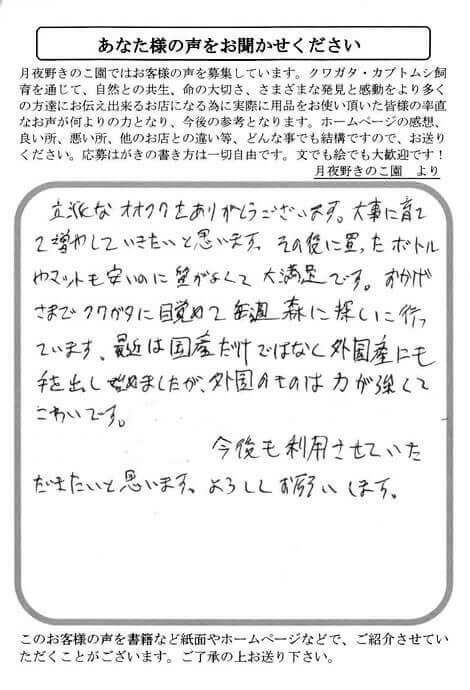 あなた様の声をお聞かせください
月夜野きのこ園ではお客様の声を募集しています。クワガタ・カブトムシ飼
育を通じて、自然との共生、命の大切さ、さまざまな発見と感動をより多く
の方達にお伝え出来るお店になる為に実際に用品をお使い頂いた皆様の率直
なお声が何よりの力となり、今後の参考となります。ホームページの感想、
良い所、悪い所、他のお店との違い等、どんな事でも結構ですので、お送り
ください。応募はがきの書き方は一切自由です。文でも絵でも大歓迎です！
月夜野きのこ園　より
立派なオオクワをありがとうございます。大事に育て
て増やしていきたいと思います。その後に買ったボトル
やマットも安いのに質がよくて大満足です。おかげ
さまでクワガタに目覚めて毎週森に探しに行っ
ています。最近は国産だけではなく外国産にも
手を出し始めましたが、外国のものは力が強くて
こわいです。
今後も利用させていた
だきたいと思います。よろしくお願いします。
このお客様の声を書籍など紙面やホームページなどで、ご紹介させてい
ただくことがございます。ご了承の上お送り下さい。